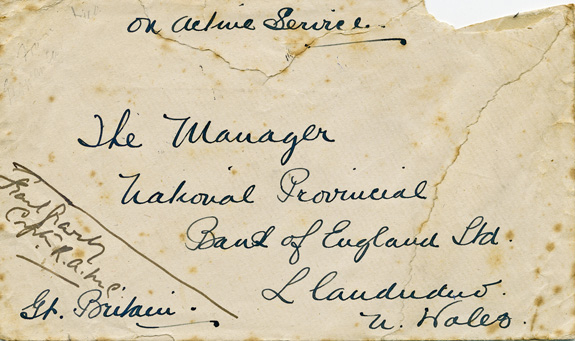 on Active Service.
The Manager
National Provincial
Bank of England Ltd.
Llandudno.
N. Wales.
Capt. R.A.M.C.
Gt. Britain.